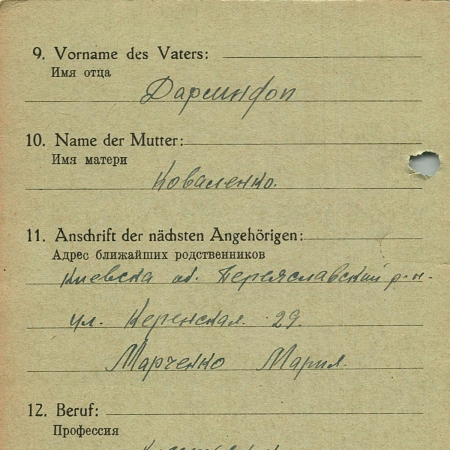 9. Vorname des Vaters:
Имя отца
10. Name der Mutter:
Имя матери
Коваленко.
11. Anschrift der nächsten Angehörigen:
Адрес ближайших родственников
Киевска об. Переяславский р-н.
ул. Керенская 29.
Марченко Мария.
12. Beruf:
Профессия